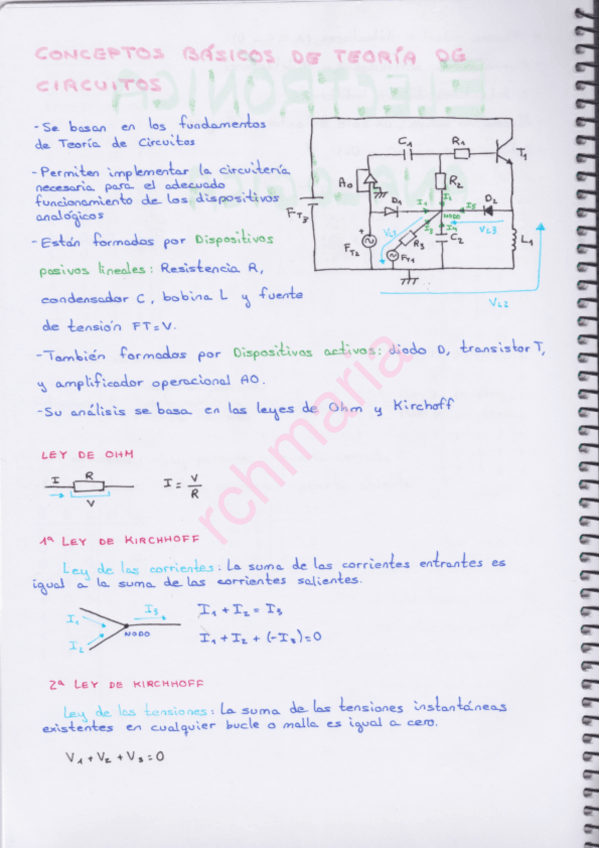 CONCEPTOS BÁSICOS DE TEORÍA DE
CIRCUITOS
ELECTRÓNICA
- Se basan en los fundamentos
de Teoría de Circuitos
- Permiten implementar la circuitería
necesaria para el adecuado
funcionamiento de los dispositivos
analógicos
- Están formados por Dispositivos
pasivos lineales: Resistencia R,
condensador C, bobina L y fuente
de tensión FT=V.
C1
R1
T1
AO
R2
I1
I2
D1
D2
I5
NODO
FT3
VL1
I3
I4
VL3
FT2
R3
C2
L1
FT1
VL2
- También formados por Dispositivos activos: diodo D, transistor T,
y amplificador operacional AO.
- Su análisis se basa en las leyes de Ohm y Kirchoff
LEY DE OHM
I R V
I = V/R
1ª LEY DE KIRCHHOFF
Ley de las corrientes: La suma de las corrientes entrantes es
igual a la suma de las corrientes salientes.
I1 I2 I3 NODO
I1 + I2 = I3
I1 + I2 + (-I3) = 0
2ª LEY DE KIRCHHOFF
Ley de las tensiones: La suma de las tensiones instantáneas
existentes en cualquier bucle o malla es igual a cero.
V1 + V2 + V3 = 0
rchmaria